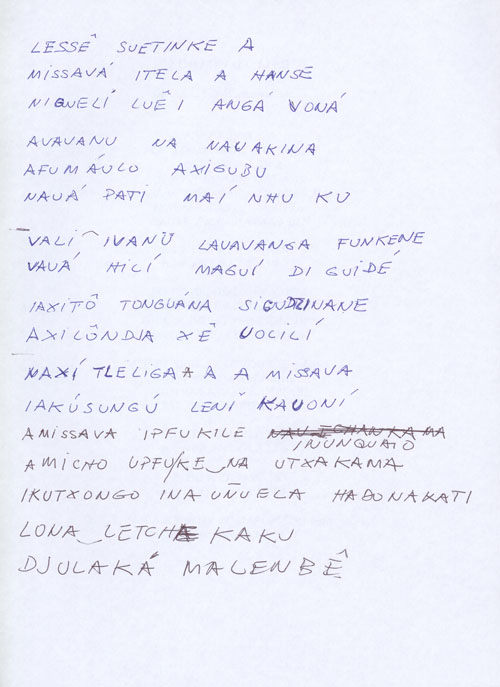 LESSÊ SUETINKE A
MISSAVÁ ITELA A HANSE
NIQUELÍ LUÊ I ANGÁ VONÁ
AVAVANU NA NAUAKINA
AFUMÁULO AXIGUBU
NAUÁ PATI MAÍ NHU KU
VALI IVANU LAUAVANGA FUNKENE
VAUÁ HILÍ MAGUÍ DI GUIDÉ
IAXITÔ TONGUÁNA
AXILÔNDJA XÊ UOLILÍ
A A MISSAVA
IAKÚSUNGÚ LENI KAUONÍ
AMISSAVA IPFUKILE
INUNQUATO
AMICHO UPFUKE NA UTXAKAMA
IKUTXONGO INA UÑUELA HADUNAKATI
LONA LETCHA KAKU
DJULAKÁ MALENBÊ